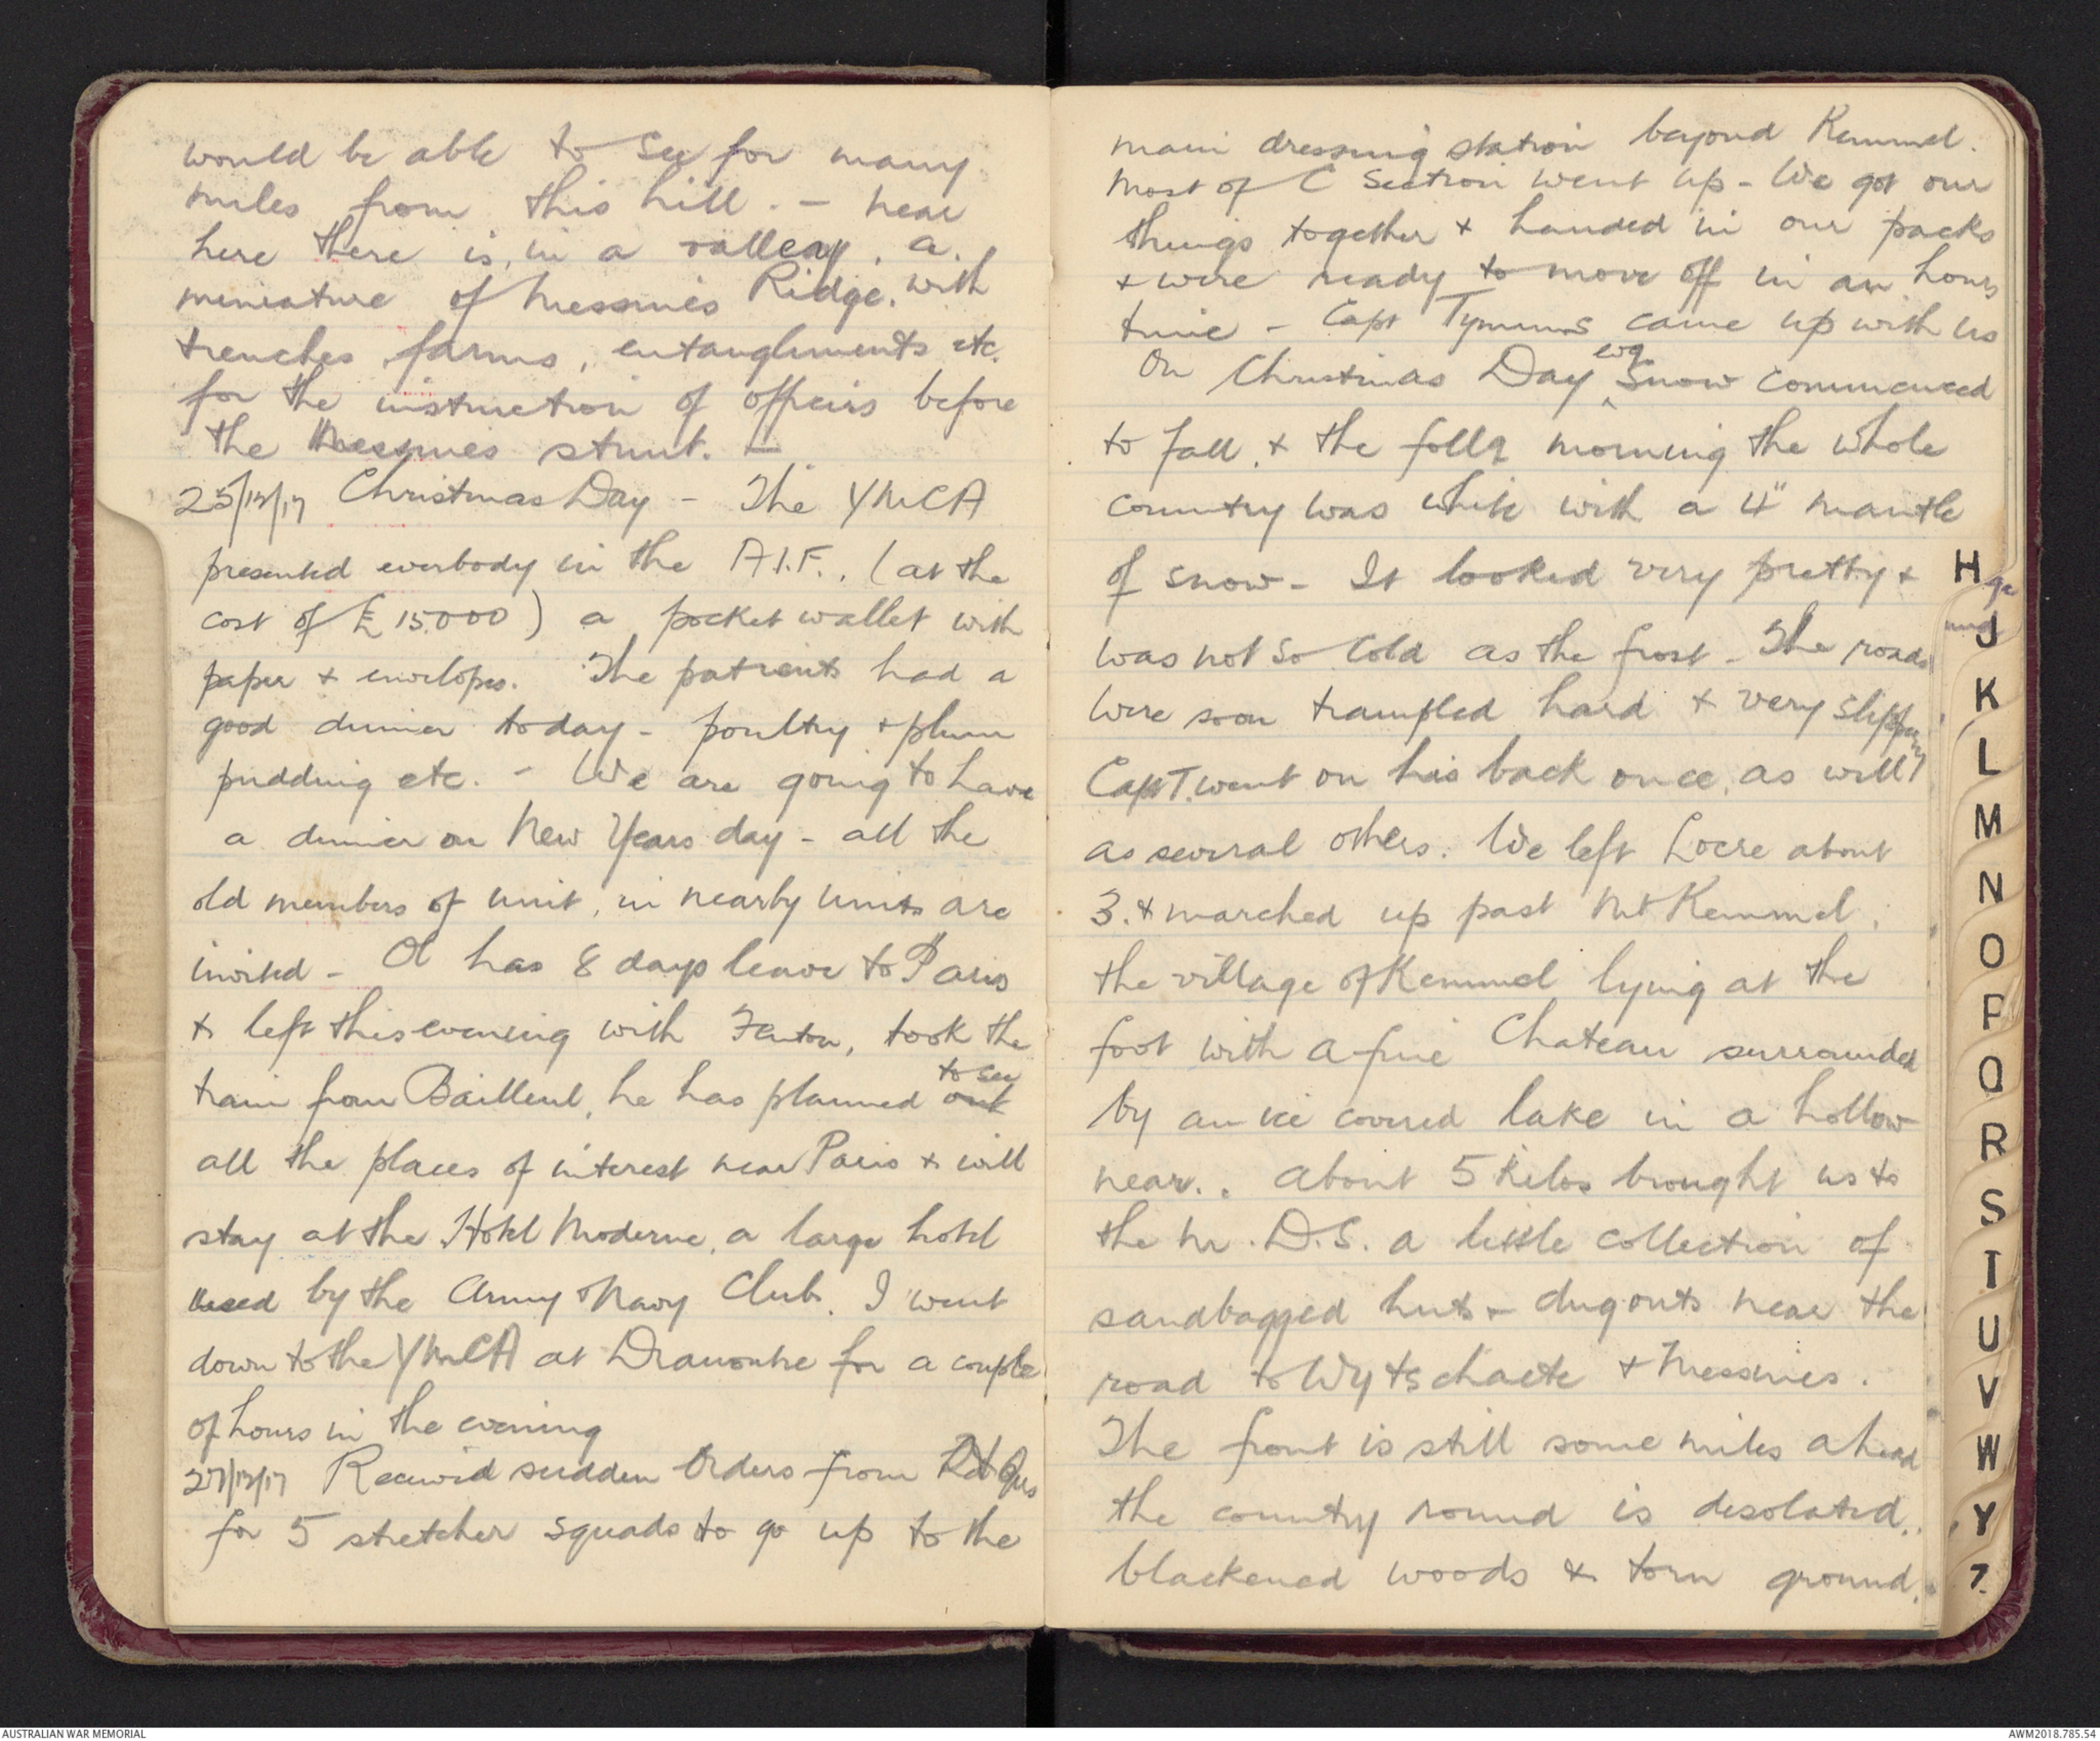 would be able to see for many
miles from this hill. - near
here there is, in a valleay, a.
meniature of Messines Ridge. with
trenches farms, entanglements etc.
for the instruction of officers before
the Messines stunt. -
25/12/17 Christmas Day - The YMCA
presented everbody in the A.I.F., (at the
cost of £15.000) a pocket wallet with
paper & envelopes. The patients had a
good dinner today - poultry & plum
pudding etc. - We are going to have
a dinner on New Years day - all the
old members of unit, in nearby units are
invited - Ol has 8 days leave to Paris
& left this evening with Fenton, took the
train from Bailleul, he has planned out to see
all the places of interest near Paris & will
stay at the Hotel Moderne, a large hotel
used by the Army & Navy Club. I went
down to the YMCA at Dranoutre for a couple
of hours in the evening
27/12/17 Received sudden orders from Hd Qrs
for 5 stretcher squads to go up to the
main dressing station beyond Kemmel.
Most of C Section went up - We got our
things together & handed in our packs
& were ready to move off in an hours
time - Capt Tymms came up with us
On Christmas Day evg. Snow commenced
to fall, & the follg morning the whole
country was white with a 4" mantle
of snow - It looked very pretty &
was not so cold as the frost - The roads
were soon trampled hard & very slippery
Capt T. went on his back once, as well
as several others. We left Locre about
3. & marched up past Mt Kemmel.
the village of Kemmel lying at the
foot with a fine Chateau surrounded
by an ice covered lake in a hollow
near.. About 5 kilos brought us to
the M. D.S. a little collection of
sandbagged huts & dugouts near the
road to Wytschaete & Messines.
The front is still some miles ahead
the country round is desolated.
blackened woods & torn ground.
H
J
K
L
M
N
O
P
Q
R
S
T
U
V
W
Y
AUSTRALIAN WAR MEMORIAL
AWM2018.785.54